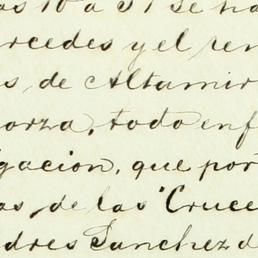 as 10 a 31 se ha
ercedes y el ren
s, de Altamir
orza, todo enf
gacion, que por
as, de las "Cruce
dres Sanchez d